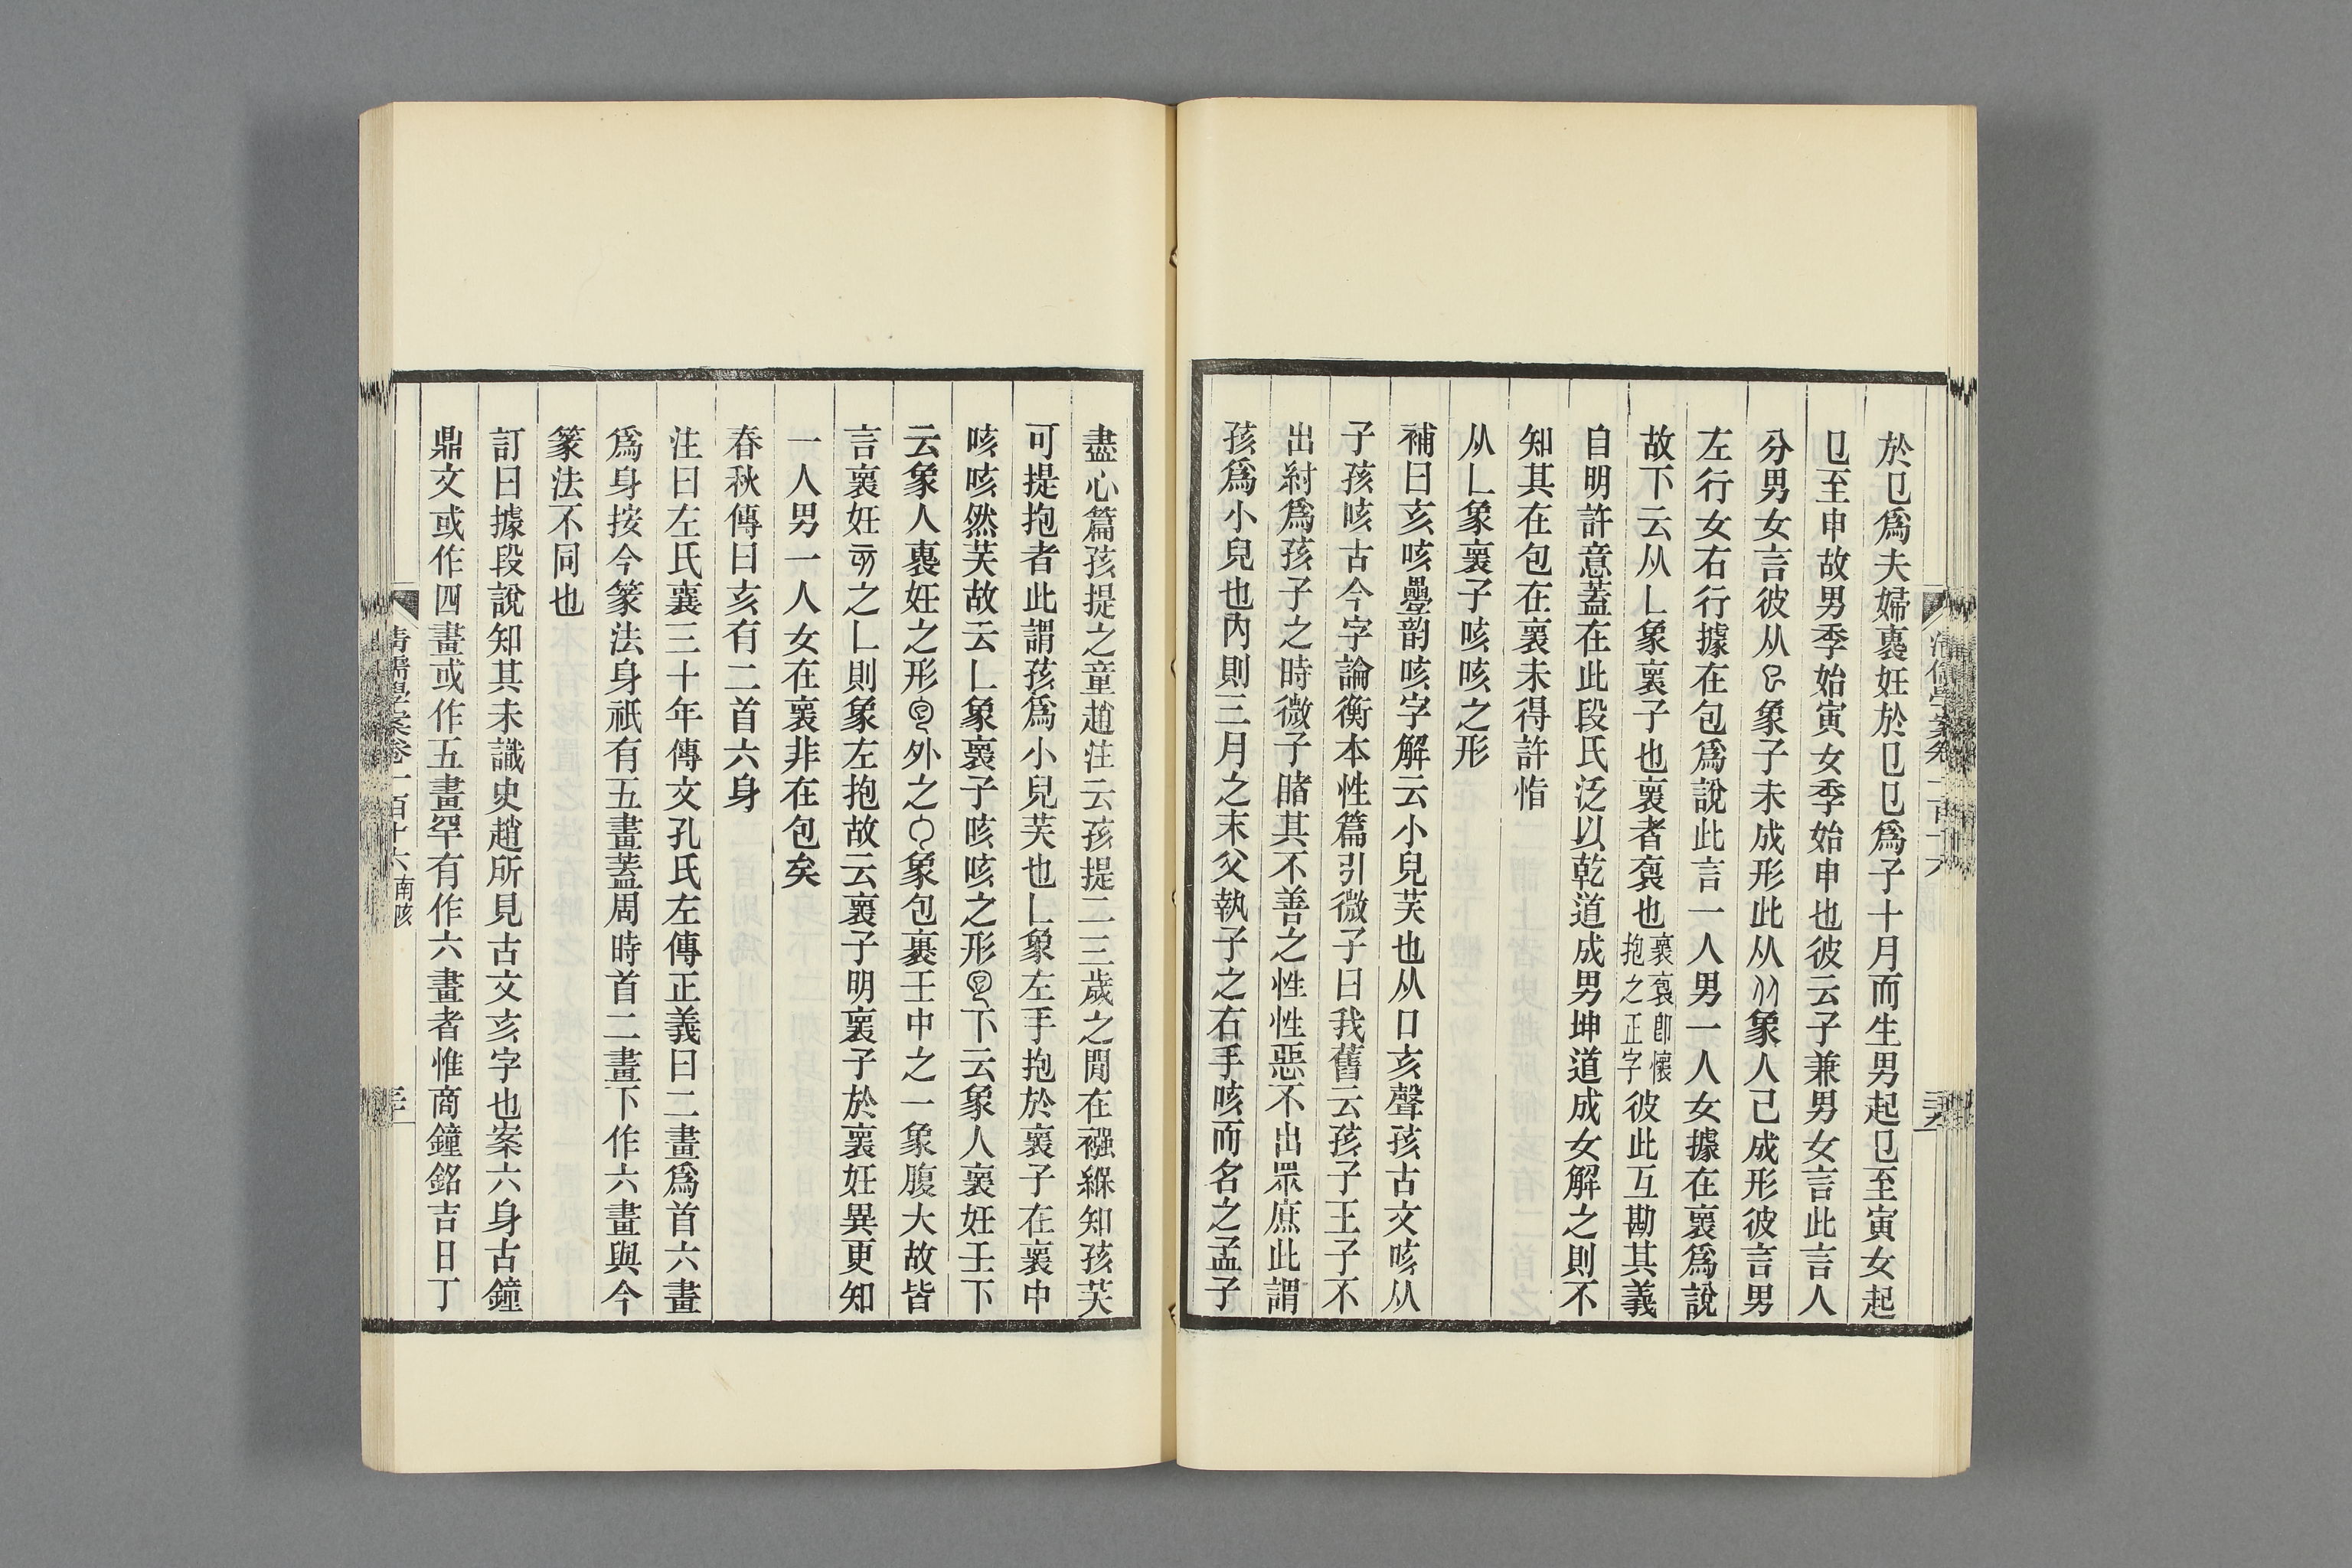 於㔾爲夫婦裹妊於㔾㔾爲子十月而生男起㔾至寅女起
㔾至申故男秊始寅女秊始申也彼云子兼男女言此言人
分男女言彼从象子未成形此从象人己成形彼言男
左行女右行據在包爲說此言一人男一人女據在褱爲說
故下云从乚象褱子也褱者裒也褱裒卽懷抱之正字彼此互勘其義
自明許意蓋在此段氏泛以乾道成男坤道成女解之則不
知其在包在褱未得許恉
从乚象褱子咳咳之形
補曰亥咳疊韵咳字解云小兒芺也从口亥聲孩古文咳从
子孩咳古今字論衡本性篇引微子曰我舊云孩子王子不
出紂爲孩子之時微子睹其不善之性性惡不出眾庶此謂
孩爲小兒也內則三月之末父執子之右手咳而名之孟子
盡心篇孩提之童趙注云孩提二三歲之閒在襁緥知孩芺
可提抱者此謂孩爲小兒芺也乚象左手抱於褱子在褱中
咳咳然芺故云乚象褱子咳咳之形下云象人褱妊壬下
云象人裹妊之形外之象包裹壬中之一象腹大故皆
言褱妊之乚則象左抱故云褱子明褱子於褱妊異更知
一人男一人女在褱非在包矣
春秋傳曰亥有二首六身
注曰左氏襄三十年傳文孔氏左傳正義曰二畫爲首六畫
爲身按今篆法身祇有五畫蓋周時首二畫下作六畫與今
篆法不同也
訂曰據段說知其未識史趙所見古文亥字也案六身古鐘
鼎文或作四畫或作五畫罕有作六畫者惟商鐘銘吉日丁
清儒學案卷一百十六南陔